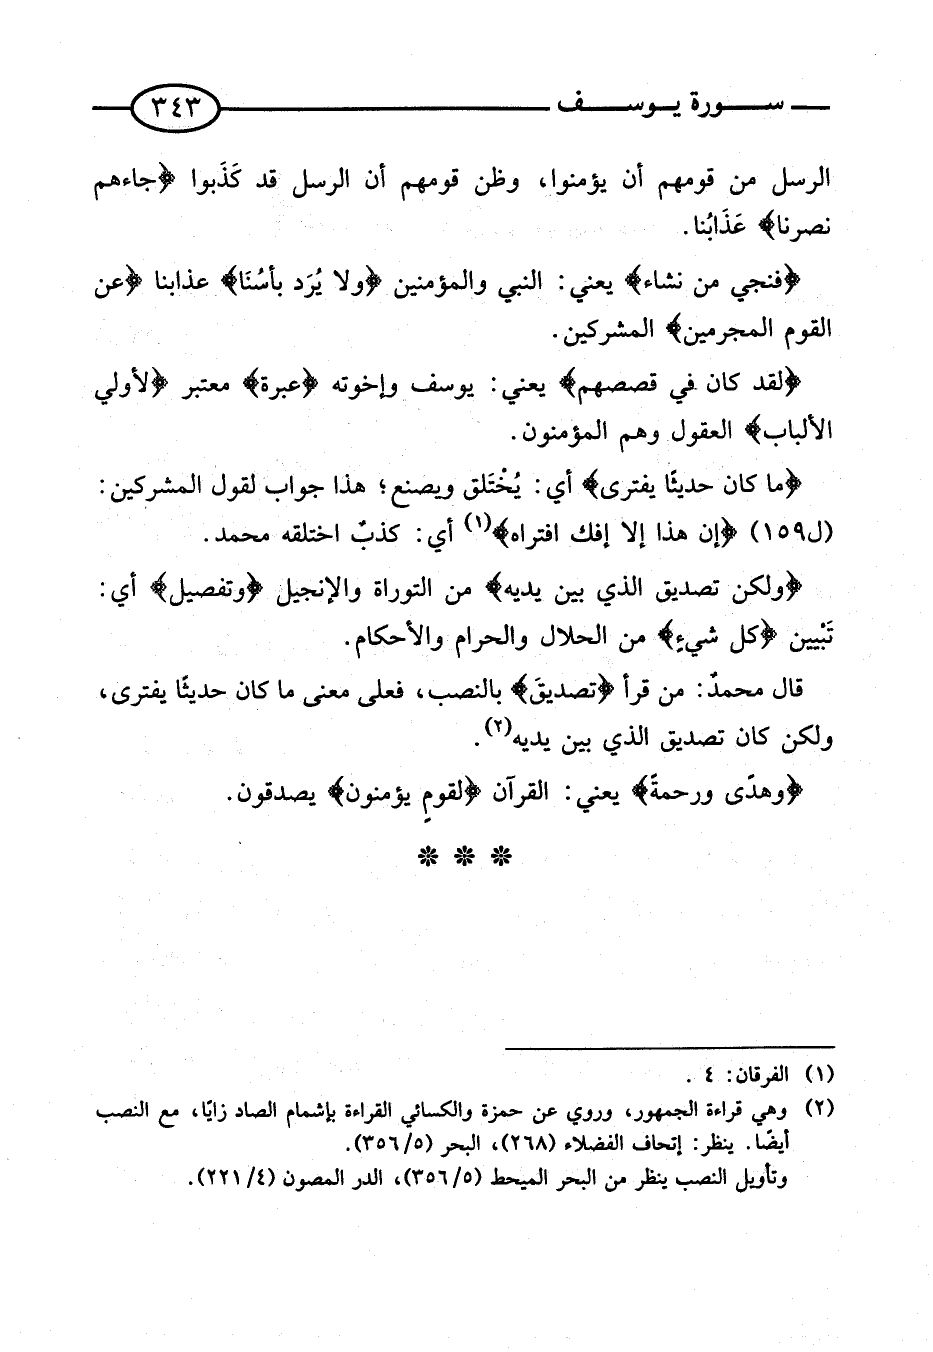 سورة يوسف ٣٤٣
الرسل من قومهم أن يؤمنوا، وظن قومهم أن الرسل قد كَذَبوا ﴿جاءهم
نصرنا﴾ عَذَابُنا.
﴿فنجي من نشاء﴾ يعني: النبي والمؤمنين ﴿ولا يُرَد بأسُنَا﴾ عذابنا ﴿عن
القوم المجرمين﴾ المشركين.
﴿لقد كان في قصصهم﴾ يعني: يوسف وإخوته ﴿عبرة﴾ معتبر ﴿لأولي
الألباب﴾ العقول وهم المؤمنون.
﴿ما كان حديثًا يفترى﴾ أي: يُخْتَلق ويصنع؛ هذا جواب لقول المشركين:
(ل١٥٩) ﴿إن هذا إلا إفك افتراه﴾(١) أي: كذبٌ اختلقه محمد.
﴿ولكن تصديق الذي بين يديه﴾ من التوراة والإنجيل ﴿وتفصيل﴾ أي:
تَبْيين ﴿كل شيءٍ﴾ من الحلال والحرام والأحكام.
قال محمدٌ: من قرأ ﴿تصديقَ﴾ بالنصب، فعلى معنى ما كان حديثًا يفترى،
ولكن كان تصديق الذي بين يديه(٢).
﴿وهدًى ورحمةً﴾ يعني: القرآن ﴿لقومٍ يؤمنون﴾ يصدقون.
* * *
(١) الفرقان: ٤ .
(٢) وهي قراءة الجمهور، وروي عن حمزة والكسائي القراءة بإشمام الصاد زايًا، مع النصب
أيضًا. ينظر: إتحاف الفضلاء (٢٦٨)، البحر (٣٥٦/٥).
وتأويل النصب ينظر من البحر الميحط (٣٥٦/٥)، الدر المصون (٢٢١/٤).